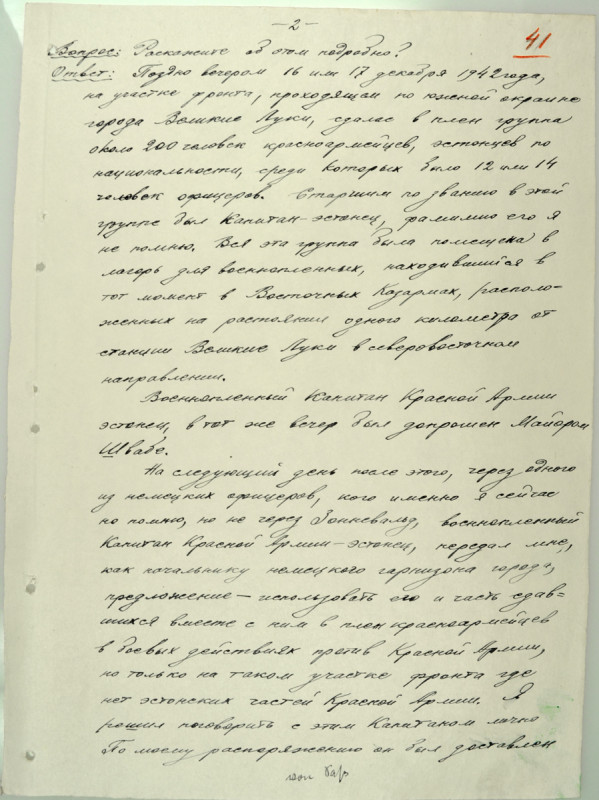 —2—
41
Вопрос: Раскажите об этом подробно?
Ответ: Поздно вечером 16 или 17 декабря 1942 года,
на участке фронта, проходящем по южной окраине
города Великие Луки, сдалась в плен группа
около 200 человек красноармейцев, эстонцев по
национальности, среди которых было 12 или 14
человек офицеров. Старшим по званию в этой
группе был Капитан-эстонец, фамилию его я
не помню. Вся эта группа была помещена в
лагерь для военнопленных, находившийся в
тот момент в Восточных Казармах, располо-
женных на растоянии одного километра от
станции Великие Луки в северовосточном
направлении.
Военнопленный Капитан Красной Армии
эстонец, в тот же вечер был допрошен Майором
Швабе.
На следующий день после этого, через одного
из немецких офицеров, кого именно я сейчас
не помню, но не через Зонневальд, военнопленный
Капитан Красной Армии-эстонец, передал мне,
как начальнику немецкого гарнизона города,
предложение — использовать его и часть сдав-
шихся вместе с ним в плен красноармейцев
в боевых действиях против Красной Армии,
но только на таком участке фронта где
нет эстонских частей Красной Армии. Я
решил поговорить с этим Капитаном лично
По моему распоряжению он был доставлен